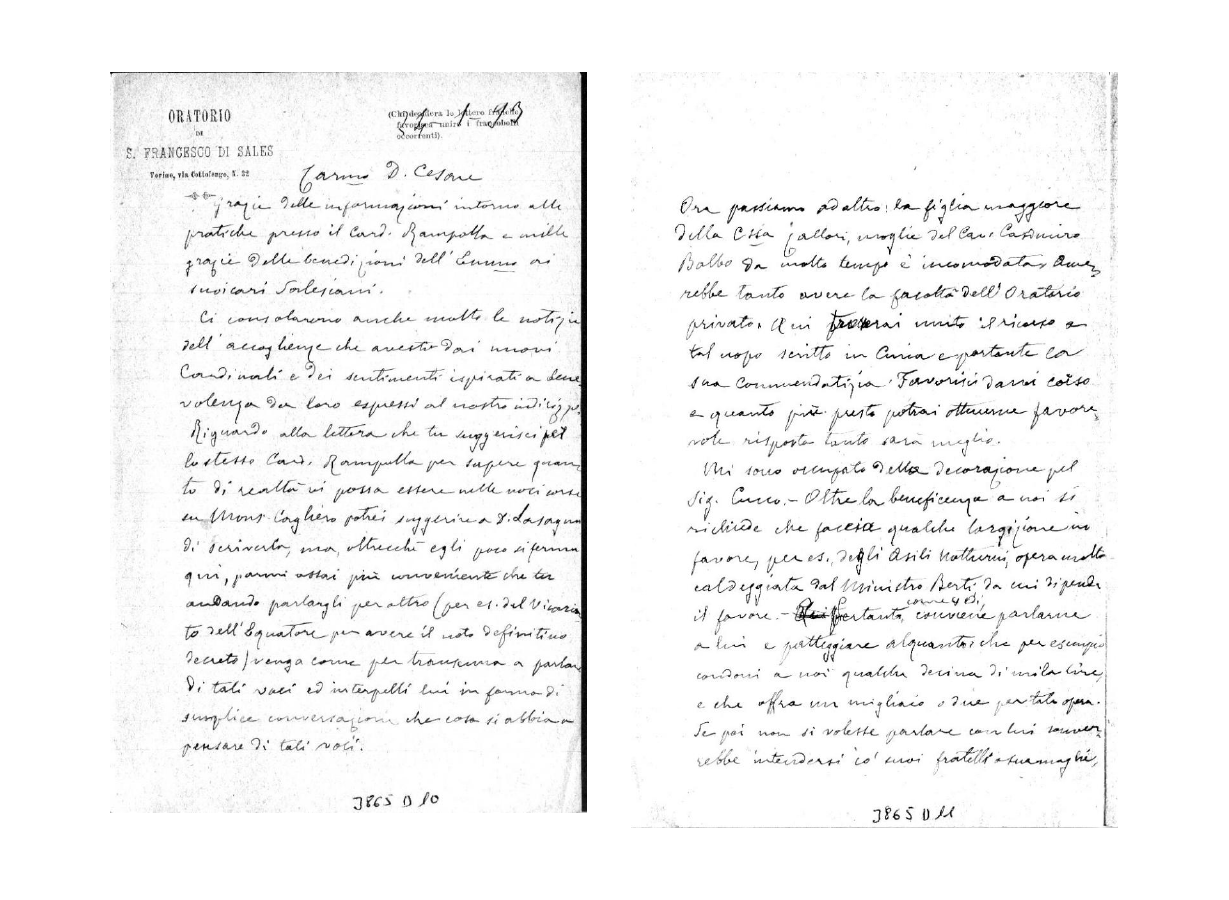 ORATORIO
DI
S. FRANCESCO DI SALES
Torino, via Cottolengo, N. 32
(Chi desidera lo lettere franche
favorisca unire i francobolli
occorrenti).
1 93
Carmo D. Cesare
Grazie delle informazioni intorno alle
pratiche presso il Card. Rampolla e mille
grazie delle benedizioni dell' Emmo ai
suoi cari Salesiani.
Ci consolarono anche molto le notizie
dell' accoglienze che aveste dai nuovi
Cardinali e dei sentimenti ispirati a bene
volenza da loro espressi al nostro indirizzo.
Riguardo alla lettera che tu suggerisci pel
lo stesso Card. Rampolla per sapere quan
to di realtà vi possa essere nelle voci corse
su Mons. Cagliero potrei suggerire a D. Lasagna
di scriverla, ma, oltrecchè egli poco si ferma
qui, parmi assai più conveniente che tu
andando parlargli per altro (per es. del Vicaria
to dell'Equatore per avere il noto definitivo
decreto) venga come per transenna a parlar
di tali voci ed interpelli lui in forma di
semplice conversazione che cosa si abbia a
pensare di tali voci.
3865 D 10
Ora passiamo ad altro: la figlia maggiore
della Cssa Callori, moglie del Cav. Casimiro
Balbo da molto tempo è incomodata, ame
rebbe tanto avere la facoltà dell' Oratorio
privato. Qui troverai unito il ricorso a
tal uopo scritto in Curia e portante la
sua commendatizia. Favorisci darvi corso
e quanto più presto potrai ottenerne favore
vole risposta tanto sarà meglio.
Mi sono occupato della decorazione pel
Sig. Cucco. - Oltre la beneficenza a noi si
richiede che faccia qualche largizione in
favore, per es, degli Asili Notturni, opera molto
caldeggiata dal Ministro Berti, da cui dipende
il favore. - Pertanto, conviene parlarne
a lui e patteggiare alquanto: che per esempio
condoni a noi qualche decina di mila lire,
e che offra un migliaio o due per tale opera.
Se poi non si volesse parlare con lui conver
rebbe intendersi co' suoi fratelli o sua moglie,
3865 D 11